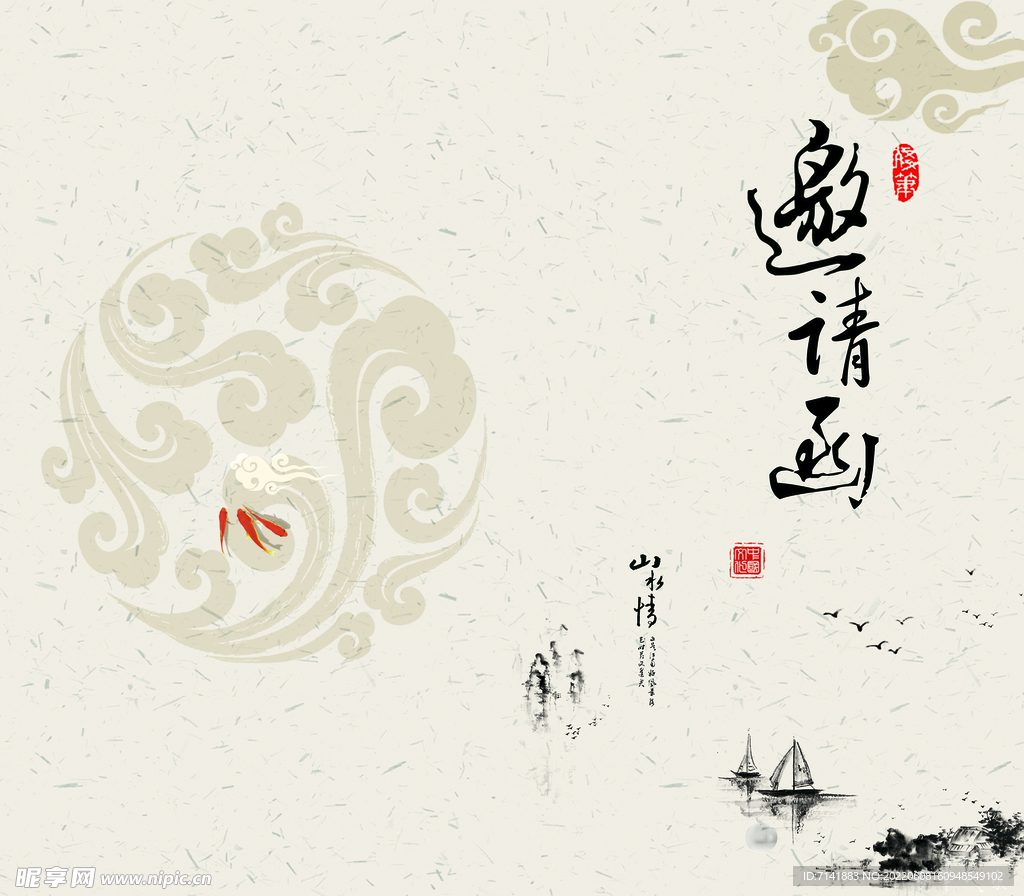 邀请函
中國
文化
山水情
昵享网 www.nipic.cn
ID:7141883 NO:20220808160948549102